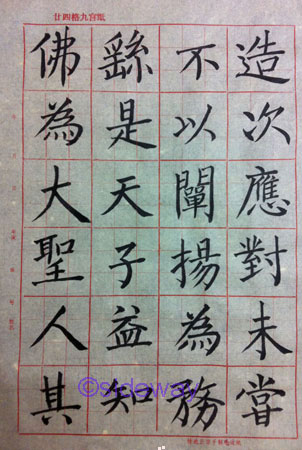 廿四格九宮紙
造次應對未嘗
不以闡揚為務
繇是天子益知
佛為大聖人其
©sideway